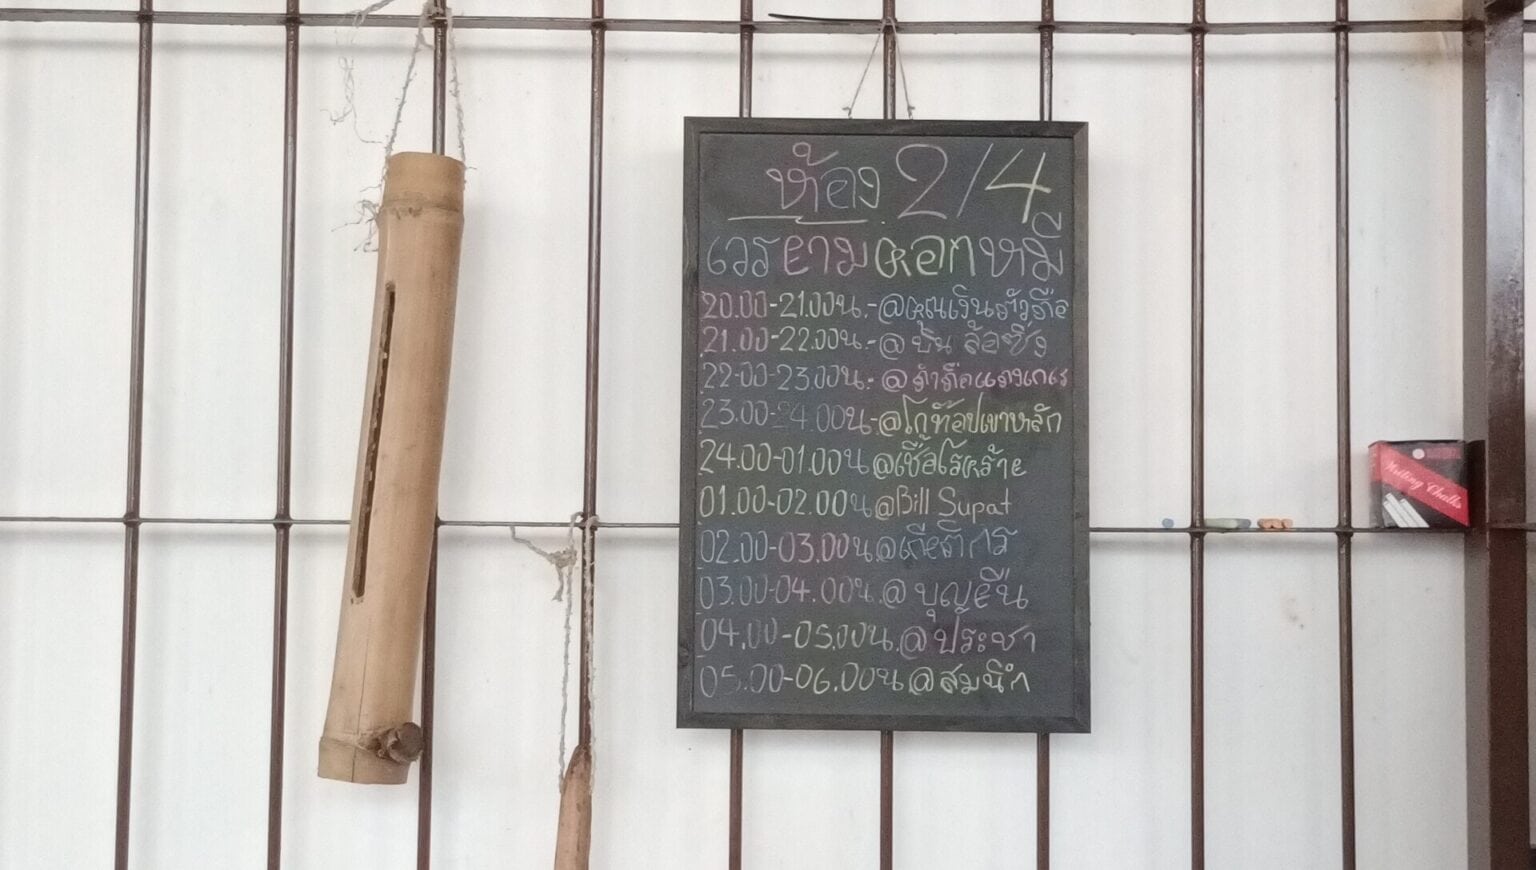 ห้อง 2/4
เวรยามคอกหมี
20.00-21.00น.-@คุณเงินตัวตือ
21.00-22.00น.-@ปืน ล้อซิ่ง
22.00-23.00น.-@ดำดือแตงเกรง
23.00-24.00น-@โกท๊อปเขาหลัก
24.00-01.00น @เชื้อไร้คร้าย
01.00-02.00น @Bill Supat
02.00-03.00น.@เกียติกร
03.00-04.00น.@บุญยืน
04.00-05.00น.@ประชา
05.00-06.00น@สมนึก
Writing Chalks